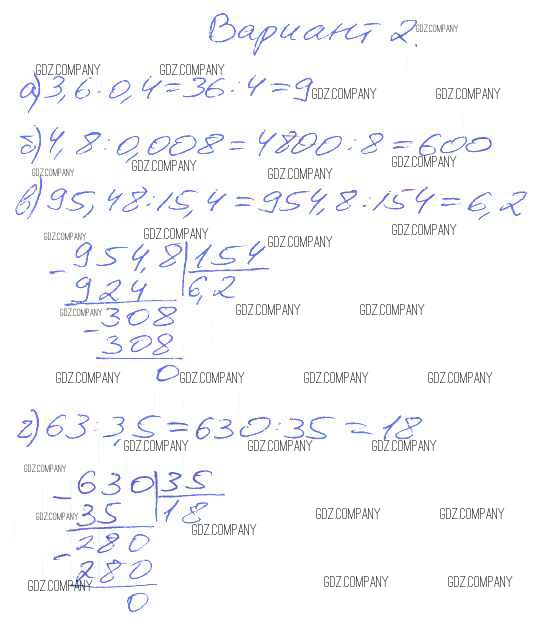 Вариант 2.
GDZ.COMPANY
GDZ.COMPANY GDZ.COMPANY
а) 3,6 · 0,4 = 36 : 4 = 9
GDZ.COMPANY GDZ.COMPANY
б) 4,8 : 0,008 = 4800 : 8 = 600
GDZ.COMPANY GDZ.COMPANY GDZ.COMPANY GDZ.COMPANY
в) 95,48 : 15,4 = 954,8 : 154 = 6,2
GDZ.COMPANY GDZ.COMPANY GDZ.COMPANY GDZ.COMPANY
- 954,8 | 154
924 | 6,2
GDZ.COMPANY GDZ.COMPANY GDZ.COMPANY
- 308
308
GDZ.COMPANY 0 GDZ.COMPANY GDZ.COMPANY GDZ.COMPANY
г) 63 : 3,5 = 630 : 35 = 18
GDZ.COMPANY GDZ.COMPANY GDZ.COMPANY
GDZ.COMPANY
- 630 | 35
35 | 18
GDZ.COMPANY GDZ.COMPANY GDZ.COMPANY GDZ.COMPANY
- 280
280
GDZ.COMPANY GDZ.COMPANY GDZ.COMPANY
0